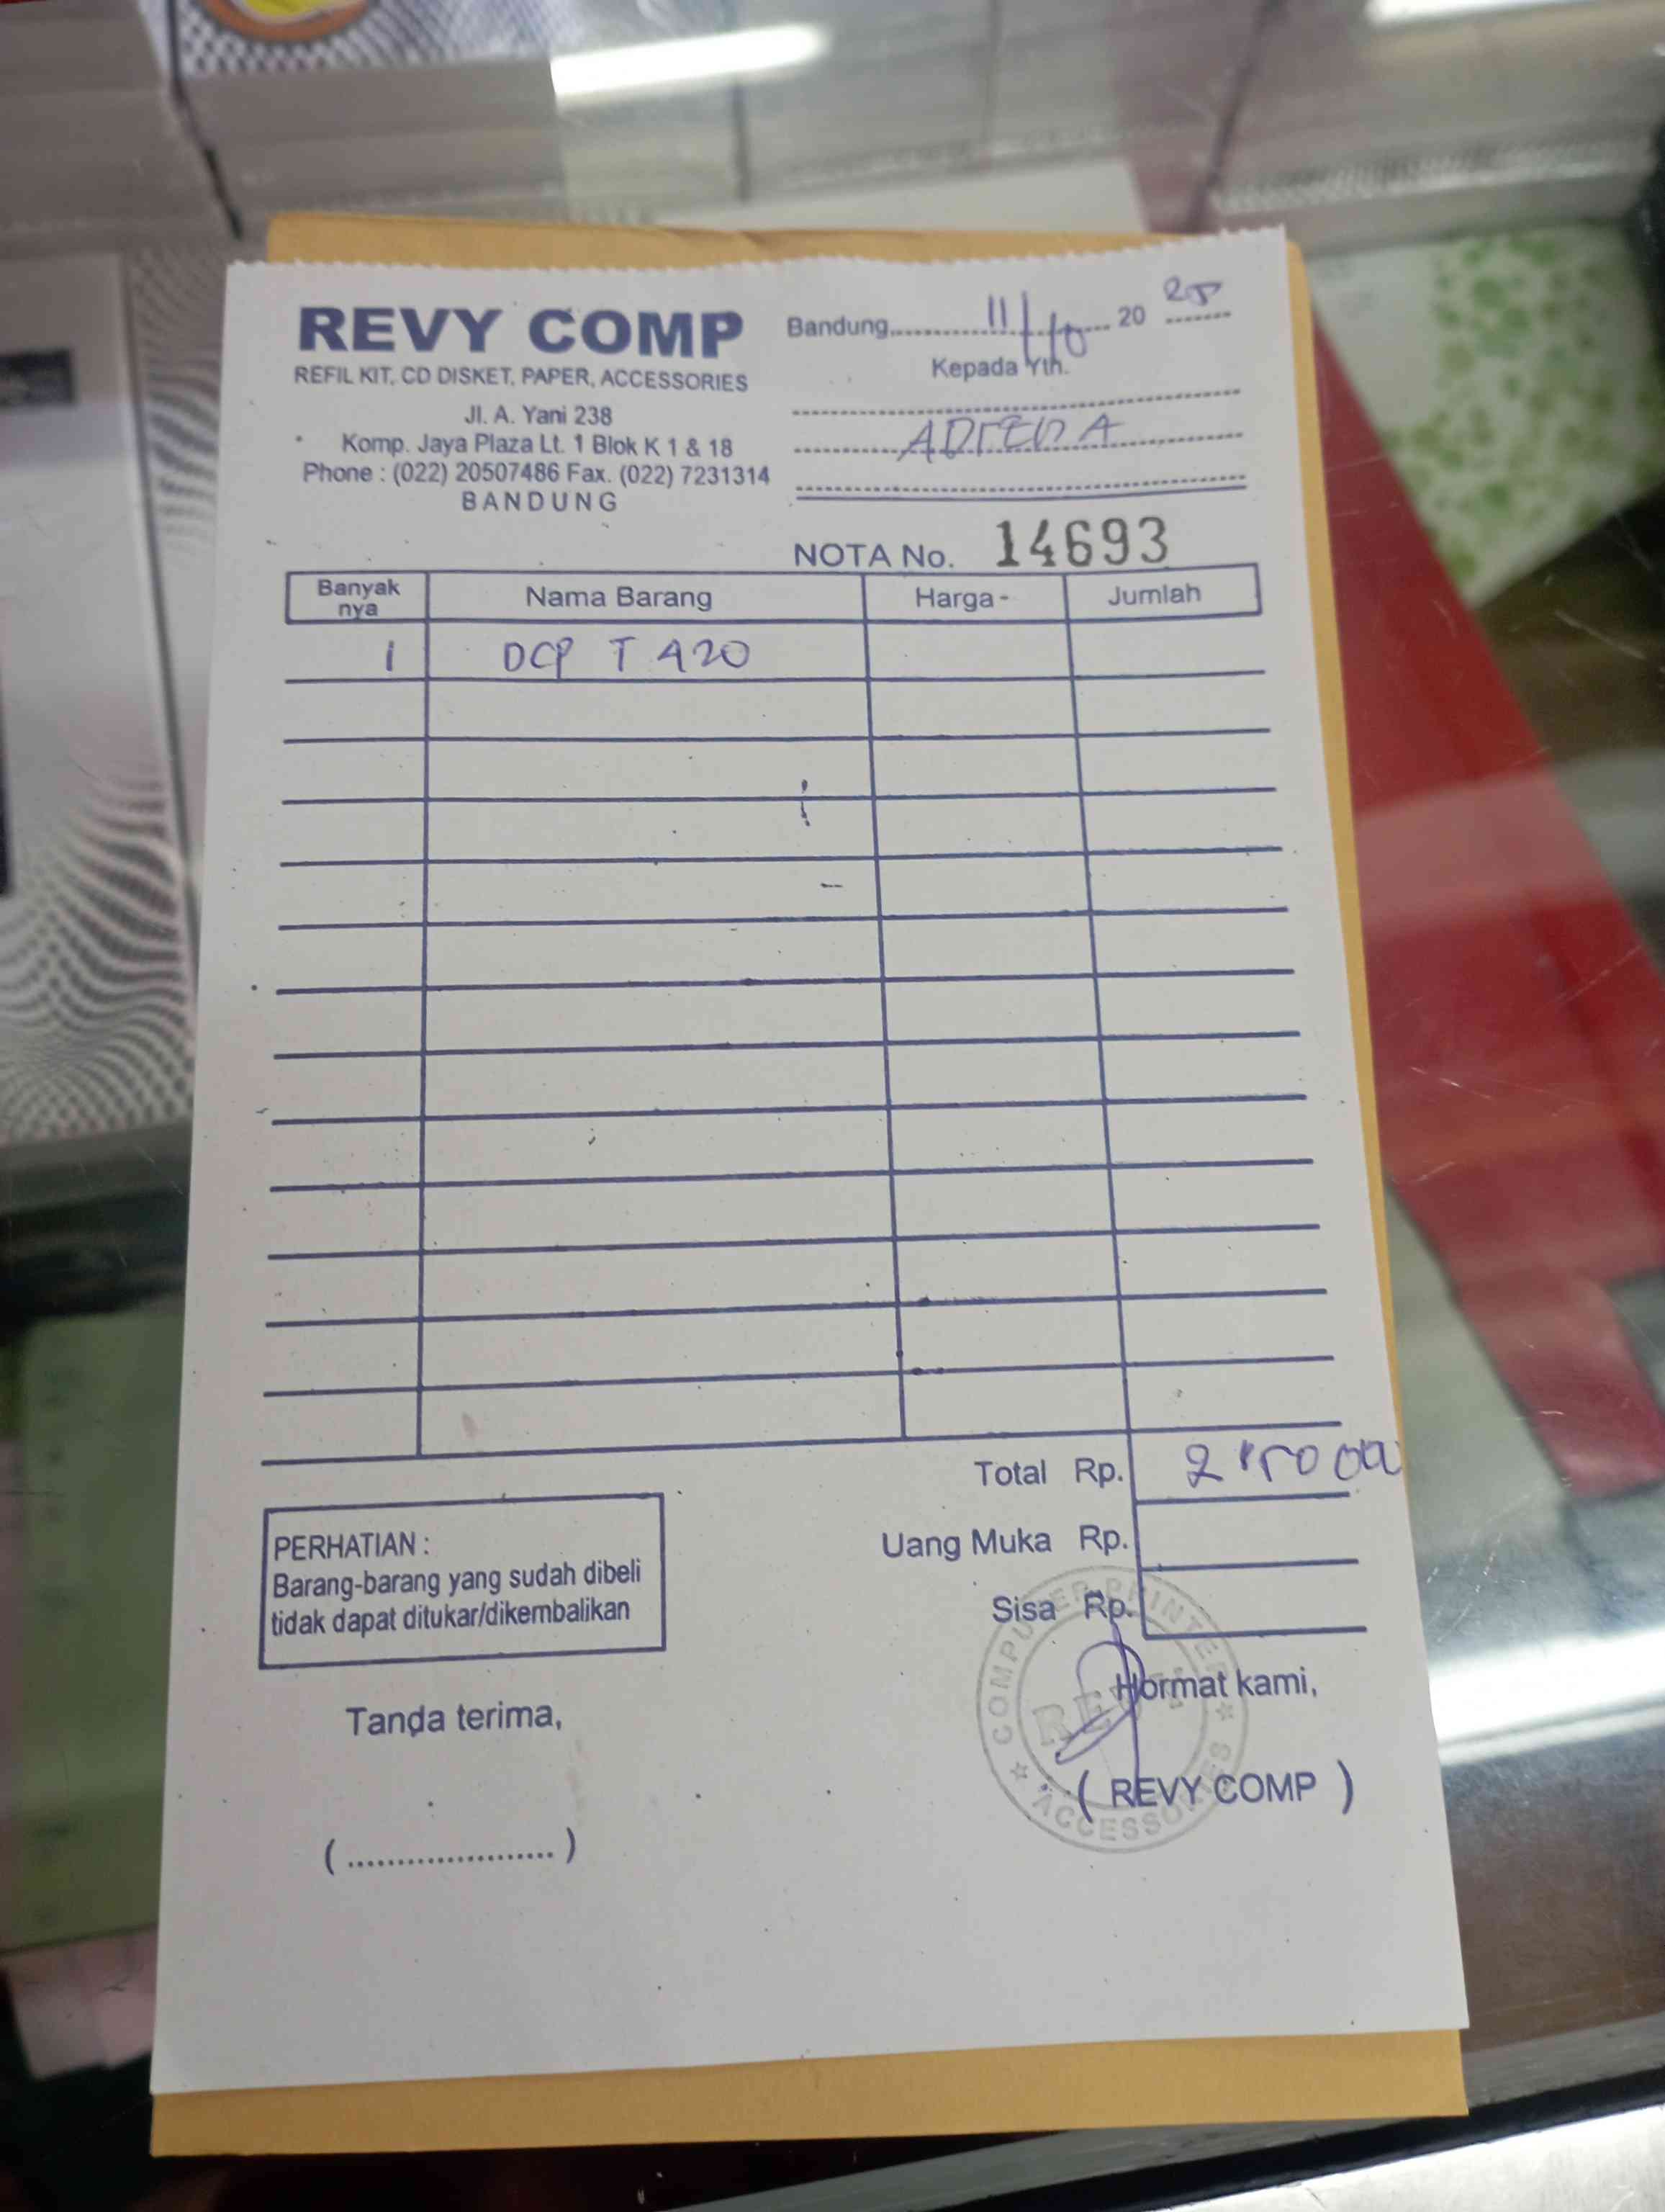 REVY COMP
REFIL KIT, CD DISKET, PAPER, ACCESSORIES
Jl. A. Yani 238
Komp. Jaya Plaza Lt. 1 Blok K 1 & 18
Phone : (022) 20507486 Fax. (022) 7231314
BANDUNG
Bandung, 11/10 20
Kepada Yth.
NOTA No. 14693
Banyak nya Nama Barang Harga - Jumlah
1 DCP T 420
Total Rp.
Uang Muka Rp.
Sisa Rp.
PERHATIAN :
Barang-barang yang sudah dibeli
tidak dapat ditukar/dikembalikan
Tanda terima,
(.....................)
Hormat kami,
( REVY COMP )
COMPUTER PRINTER
REVY
ACCESSORIES